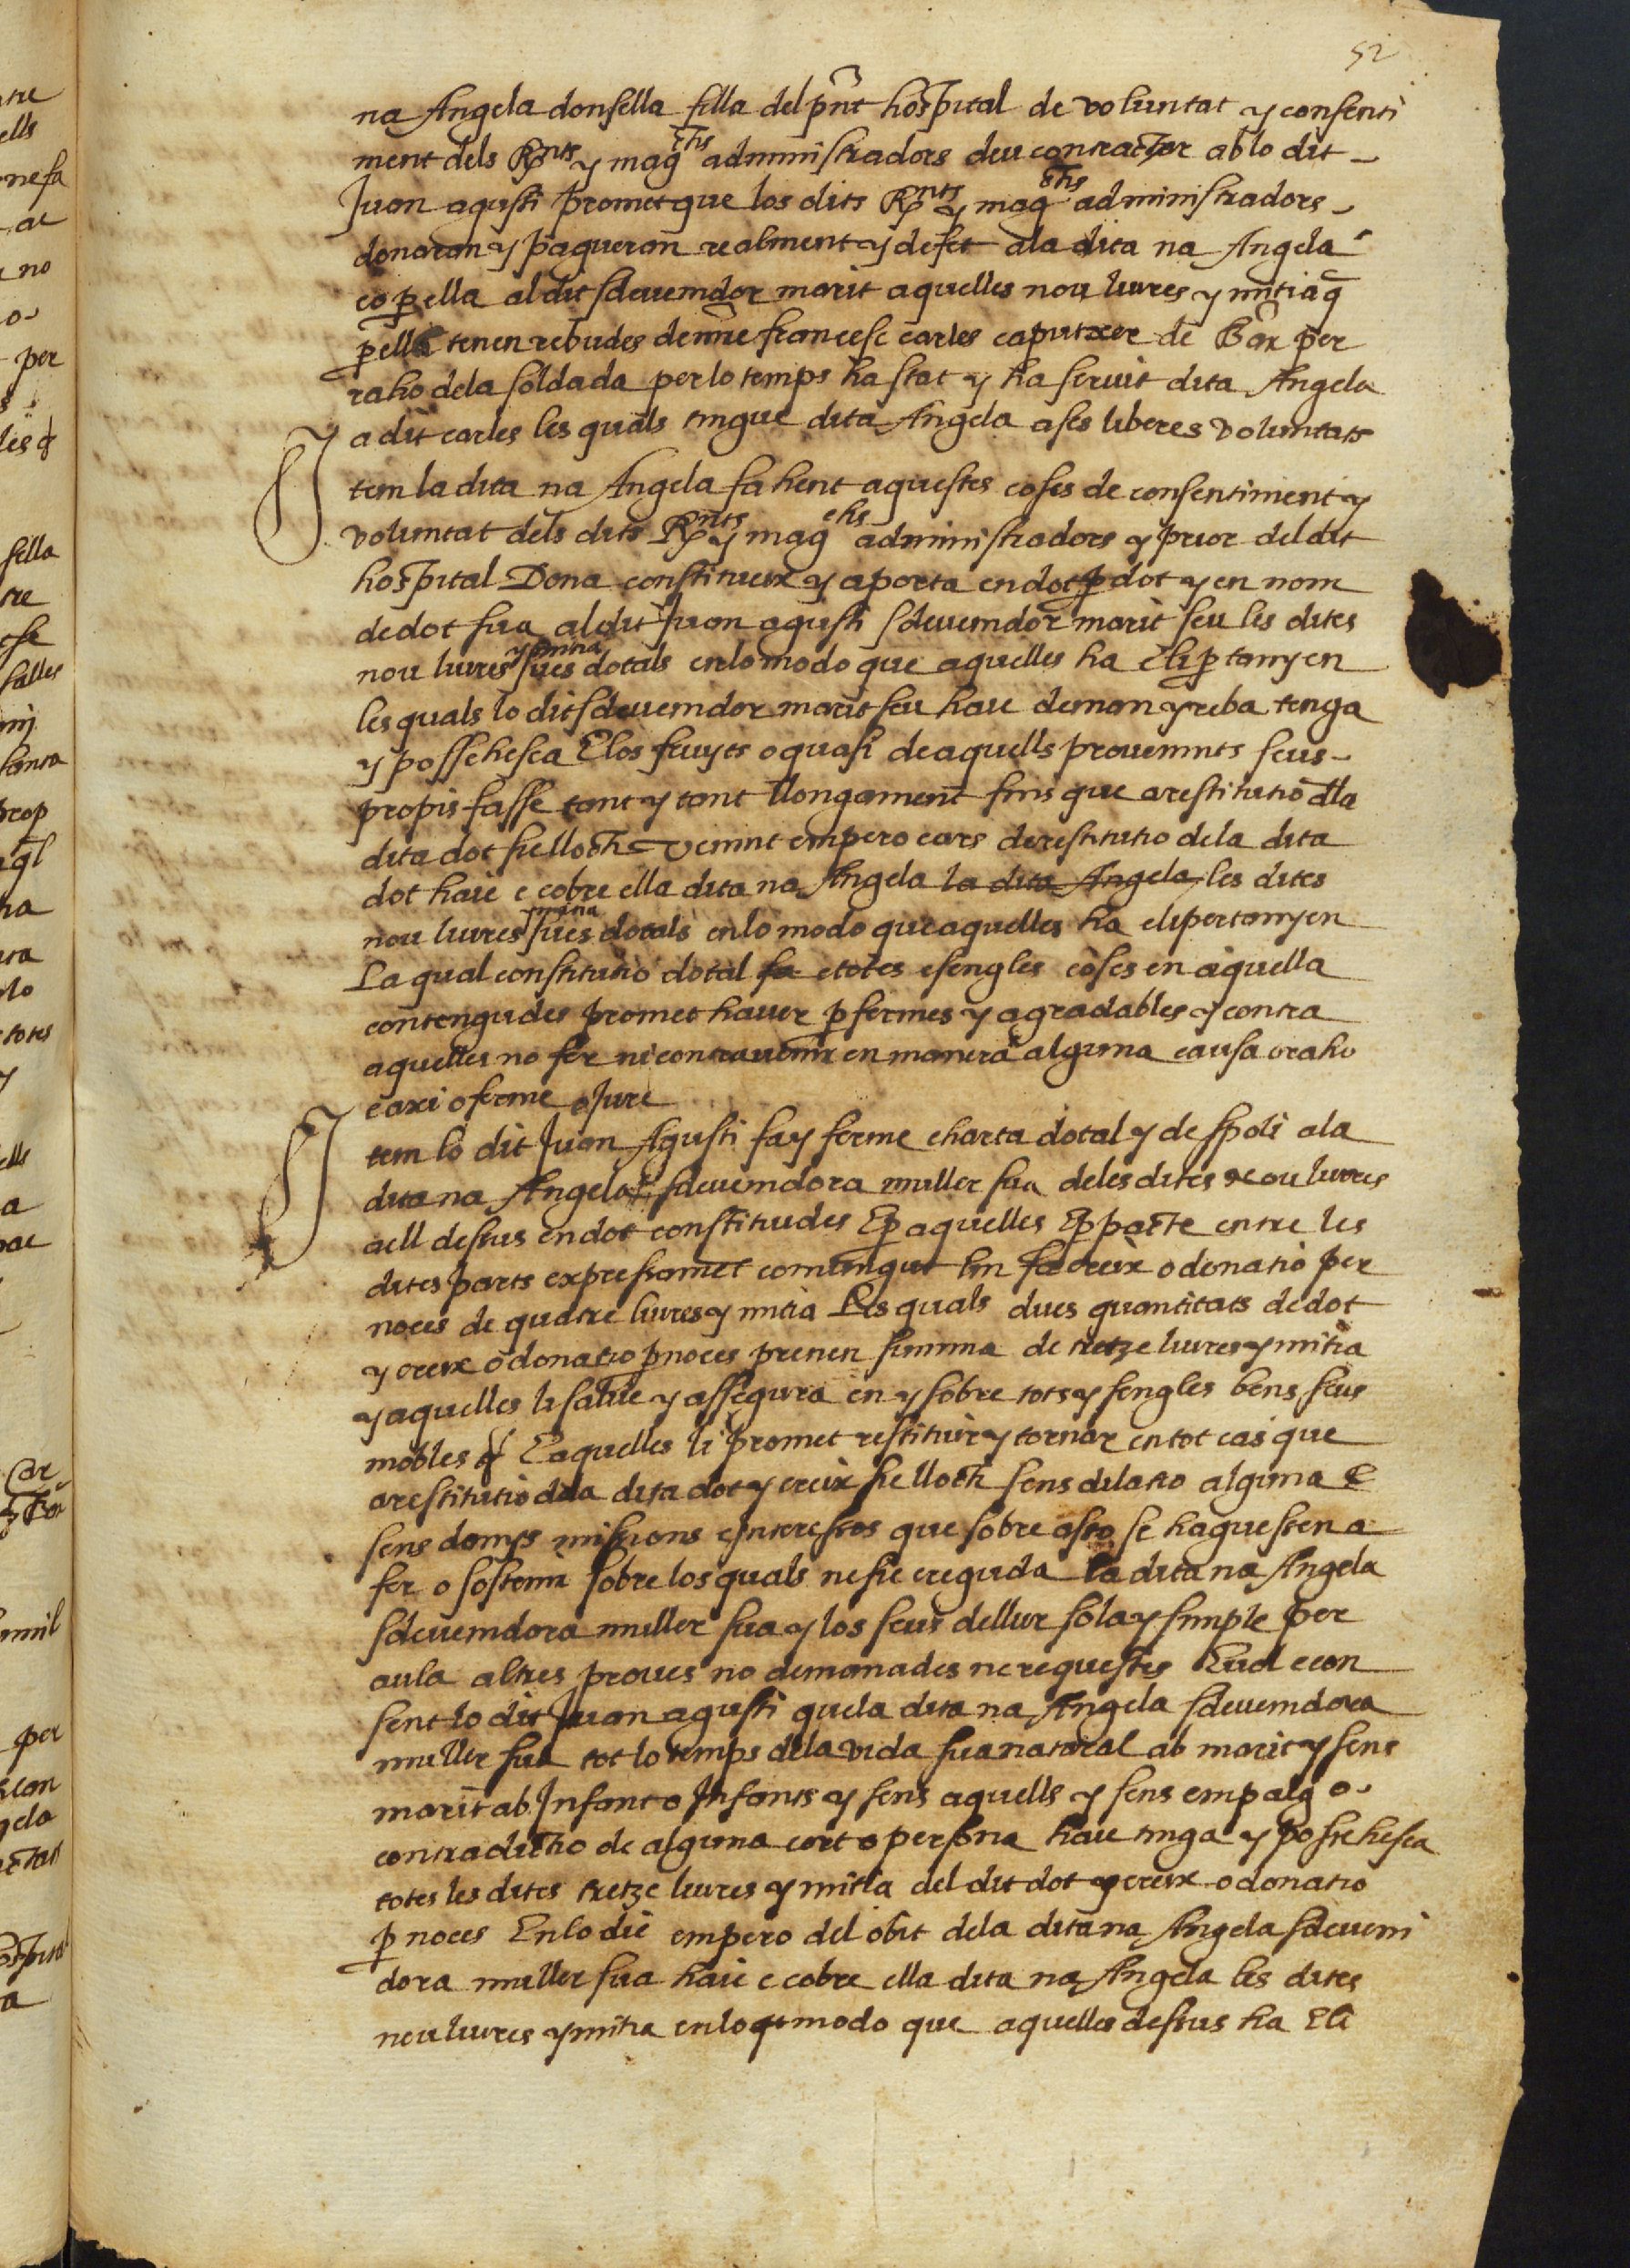 52
na Angela donsella filla del pñt hospital de voluntat y consenti
ment dels Rnts y magchs administradors deu contractar ab lo dit
Juan agusti promet que los dits Rnts y magchs administradors
donaran y pagueran realment y de fet a la dita na Angela
eo p ella al dit sdevenidor marit aquelles nou liures y mitia q
p ella tenen rebudes de mre francesc carles caputxer de Bar per
raho de la soldada per lo temps ha stat y ha seruit dita Angela
a dit carles les quals tingue dita Angela a ses liberes voluntats
Item la dita na Angela fahent aquestes coses de consentiment y
voluntat dels dits Rnts y magchs administradors y prior del dit
hospital Dona constitueix y aporta en dot p dot y en nom
de dot sua al dit Juan agusti sdeuenidor marit seu les dites
nou liures y mitia sues dotals en lo modo que aquelles ha e li p tanyen
les quals lo dit sdeuenidor marit seu haue deman y reba tenga
y possehesca E los fruyts o quasi de aquells prouenints seus
propis fasse tant y tant llongament fins que a restitutio dla
dita dot sie lloch Venint empero cars de restitutio de la dita
dot haie e cobre ella dita na Angela la dita Angela les dites
nou liures y mitia sues dotals en lo modo que aquelles ha e li pertanyen
La qual constitutio dotal fa e totes e sengles coses en aquella
contengudes promet hauer p fermes y agradables y contra
aquelles no fer ni contrauenir en manera alguna causa o raho
e axi o ferme o Jure
Item lo dit Juan Agusti fa y ferme charta dotal y de spoli a la
dita na Angela sdeuenidora muller sua de les dites nou liures
a ell dessus en dot constitudes E p aquelles E p pacte entre les
dites parts expressament comvingut lin fa creix o donatio per
noces de quatre liures y mitia Les quals dues quantitats de dot
y creix o donatio p noces prenen summa de tretze liures y mitia
y aquelles li salue y assegura en y sobre tots y sengles bens seus
mobles & E aquelles li promet restituir y tornar en tot cas que
a restitutio dla dita dot y creix sie lloch sens dilatio alguna E
sens damps missions e interessos que sobre asso se haguessen a
fer o sostenir sobre los quals ne sie creguda la dita na Angela
sdeuenidora muller sua y los seus de llur sola y simple per
aula altres proues no demanades ne requestes E vol e con
sent lo dit Juan agusti que la dita na Angela sdeuenidora
muller sua tot lo temps dela vida sua natural ab marit y sens
marit ab Infant o Infants y sens aquells y sens empaig o
contradictio de alguna cort o persona haue tinga y possehesca
totes les dites tretze liures y mitia del dit dot y creix o donatio
p noces En lo die empero del obit de la dita na Angela sdeueni
dora muller sua haie e cobre ella dita na Angela les dites
nou liures y mitia en lo modo que aquelles dessus ha E li